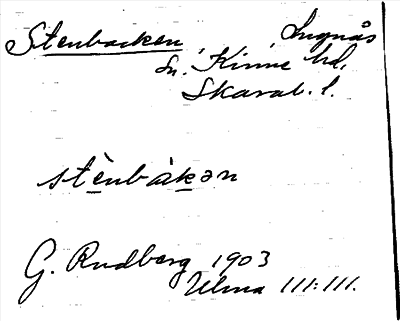 Stenbacken Lugnås
Sn. Kinne hd.
Skarab. l.
stènbàkən
G. Rudberg 1903
Ulma 111:111.